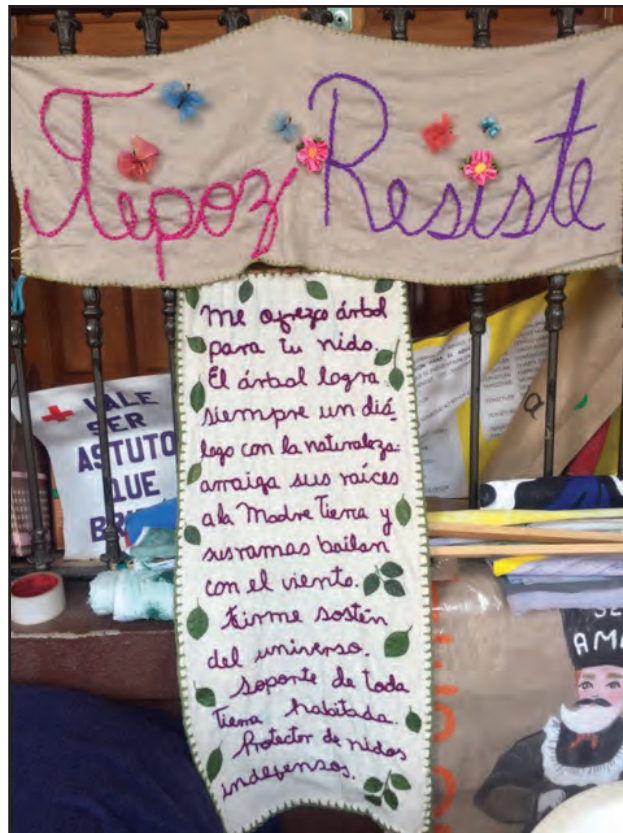 Tepoz Resiste
Me ofrezco árbol
para tu nido.
El árbol logra
siempre un diá-
logo con la naturaleza:
arraiga sus raíces
a la Madre Tierra y
sus ramas bailan
con el viento.
Firme sostén
del universo.
Soporte de toda
Tierra habitada.
Protector de nidos
indefensos.
VALE
SER
ASTUTO
QUE